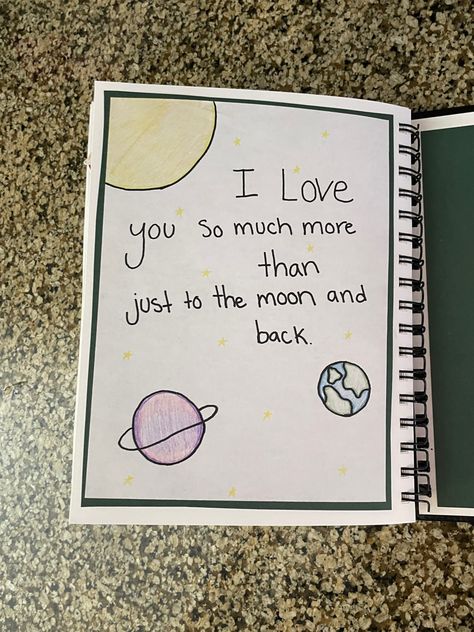 I Love
you so much more
than
just to the moon and
back.